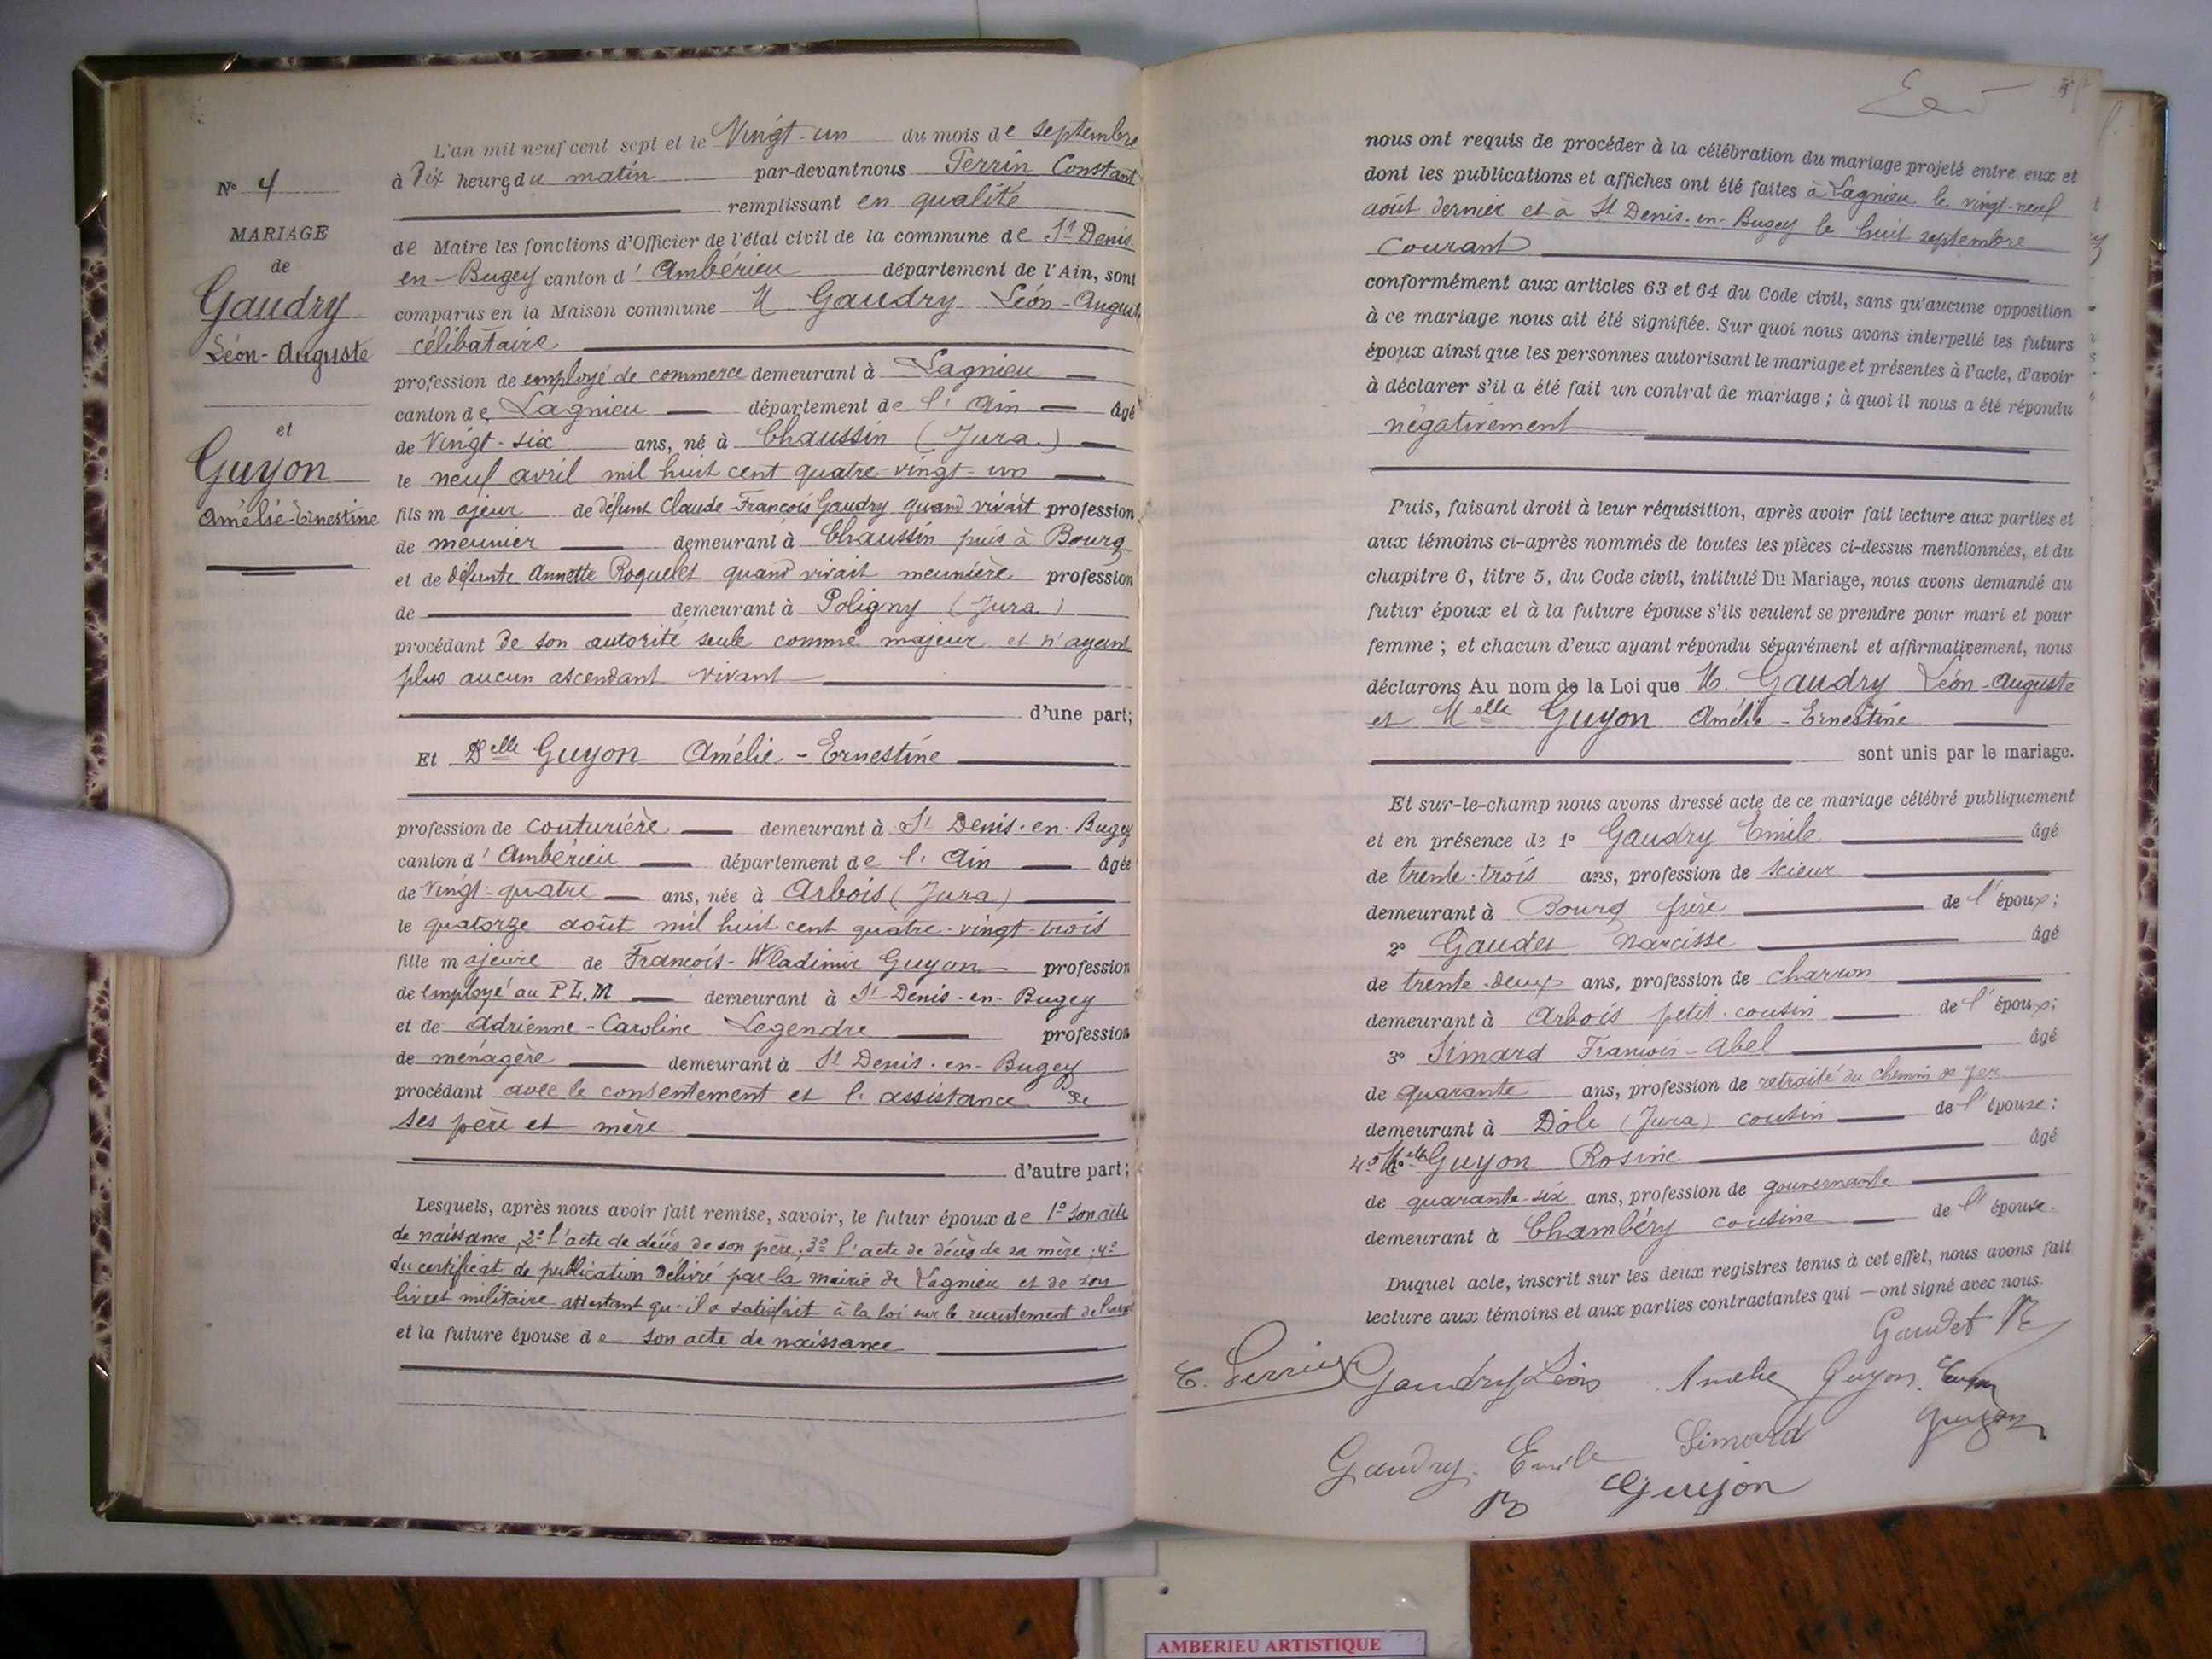 N° 4
MARIAGE
de
Gaudry
Léon-Auguste
et
Guyon
Amélie-Ernestine
L'an mil neuf cent sept et le Vingt-un du mois de septembre
à Dix heures du matin par-devant nous Perrin Constant
remplissant en qualité
de Maire les fonctions d'Officier de l'état civil de la commune de St Denis-
en-Bugey canton d'Ambérieu département de l'Ain, sont
comparus en la Maison commune M Gaudry Léon-Auguste
célibataire
profession de employé de commerce demeurant à Lagnieu
canton de Lagnieu département de l'Ain âgé
de Vingt-six ans, né à Chaussin (Jura.)
le neuf avril mil huit cent quatre-vingt-un
fils majeur de défunt Claude-François Gaudry quand vivait profession
de meunier demeurant à Chaussin puis à Bourg
et de défunte Annette Roquelet quand vivait meunière profession
de demeurant à Poligny (Jura)
procédant de son autorité seule comme majeur et n'ayant
plus aucun ascendant vivant
d'une part;
Et Delle Guyon Amélie-Ernestine
profession de couturière demeurant à St Denis-en-Bugey
canton d'Ambérieu département de l'Ain âgée
de Vingt-quatre ans, née à Arbois (Jura)
le quatorze août mil huit cent quatre-vingt-trois
fille majeure de François-Wladimir Guyon profession
de employé au P.L.M demeurant à St Denis-en-Bugey
et de Adrienne-Caroline Legendre profession
de ménagère demeurant à St Denis-en-Bugey
procédant avec le consentement et l'assistance de
ses père et mère
d'autre part;
Lesquels, après nous avoir fait remise, savoir, le futur époux de 1° son acte
de naissance, 2° l'acte de décès de son père; 3° l'acte de décès de sa mère; 4°
du certificat de publication délivré par la mairie de Lagnieu et de son
livret militaire attestant qu'il a satisfait à la loi sur le recrutement de l'armée
et la future épouse de son acte de naissance
nous ont requis de procéder à la célébration du mariage projeté entre eux et
dont les publications et affiches ont été faites à Lagnieu le vingt-neuf
août dernier et à St Denis-en-Bugey le huit septembre
courant
conformément aux articles 63 et 64 du Code civil, sans qu'aucune opposition
à ce mariage nous ait été signifiée. Sur quoi nous avons interpellé les futurs
époux ainsi que les personnes autorisant le mariage et présentes à l'acte, d'avoir
à déclarer s'il a été fait un contrat de mariage; à quoi il nous a été répondu
négativement
Puis, faisant droit à leur réquisition, après avoir fait lecture aux parties et
aux témoins ci-après nommés de toutes les pièces ci-dessus mentionnées, et du
chapitre 6, titre 5, du Code civil, intitulé Du Mariage, nous avons demandé au
futur époux et à la future épouse s'ils veulent se prendre pour mari et pour
femme; et chacun d'eux ayant répondu séparément et affirmativement, nous
déclarons Au nom de la Loi que M. Gaudry Léon-Auguste
et Melle Guyon Amélie-Ernestine
sont unis par le mariage.
Et sur-le-champ nous avons dressé acte de ce mariage célébré publiquement
et en présence de 1° Gaudry Emile âgé
de trente-trois ans, profession de scieur
demeurant à Bourg frère de l'époux;
2° Gaudet Narcisse âgé
de trente-deux ans, profession de charron
demeurant à Arbois petit-cousin de l'époux;
3° Simard François-Abel âgé
de quarante ans, profession de retraité du chemin de fer
demeurant à Dôle (Jura) cousin de l'épouse;
4° Melle Guyon Rosine âgé
de quarante-six ans, profession de gouvernante
demeurant à Chambéry cousine de l'épouse.
Duquel acte, inscrit sur les deux registres tenus à cet effet, nous avons fait
lecture aux témoins et aux parties contractantes qui — ont signé avec nous.
Gaudet N
C. Perrin Gaudry Léon Amélie Guyon
Guyon
Gaudry Emile Simard
R Guyon
AMBERIEU ARTISTIQUE